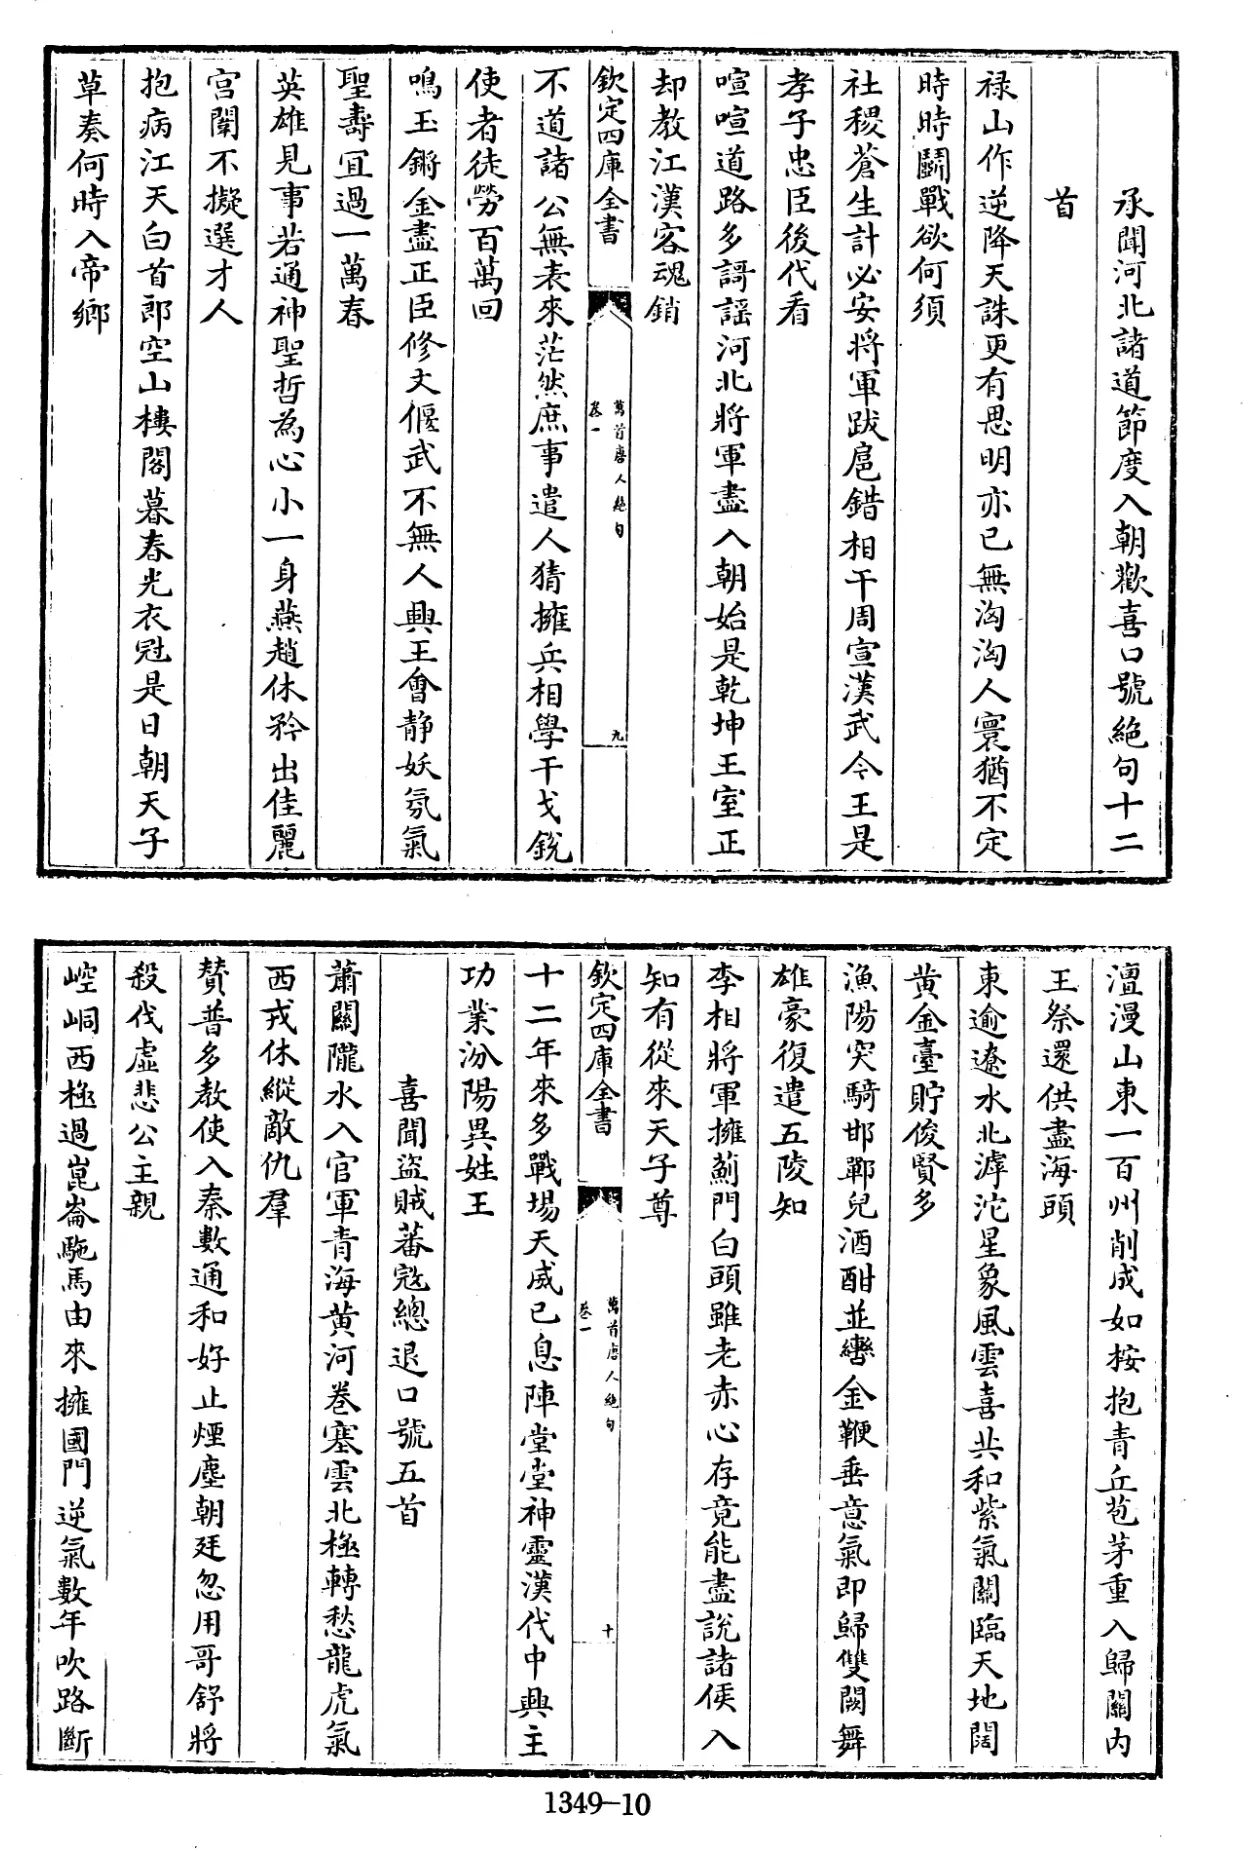 承聞河北諸道節度入朝歡喜口號絶句十二
首
禄山作逆降天誅更有思明亦已無洶洶人寰猶不定
時時鬬戰欲何須
社稷蒼生計必安將軍跋扈錯相干周宣漢武今王是
孝子忠臣後代看
喧喧道路多謌謡河北將軍盡入朝始是乾坤王室正
却教江漢客魂銷
欽定四庫全書
萬首唐人絶句
卷一
九
不道諸公無表來茫然庶事遣人猜擁兵相學干戈鋭
使者徒勞百萬回
鳴玉鏘金盡正臣修文偃武不無人興王會静妖氛氣
聖壽宜過一萬春
英雄見事若通神聖哲為心小一身燕趙休矜出佳麗
宫闈不擬選才人
抱病江天白首郎空山樓閣暮春光衣冠是日朝天子
草奏何時入帝鄉
澶漫山東一百州削成如桉抱青丘苞茅重入歸關内
王祭還供盡海頭
東逾遼水北滹沱星象風雲喜共和紫氣關臨天地闊
黄金臺貯俊賢多
漁陽突騎邯鄲兒酒酣並轡金鞭垂意氣即歸雙闕舞
雄豪復遣五陵知
李相將軍擁薊門白頭雖老赤心存竟能盡説諸侯入
知有從來天子尊
欽定四庫全書
萬首唐人絶句
卷一
十
十二年來多戰場天威已息陣堂堂神靈漢代中興主
功業汾陽異姓王
喜聞盜賊蕃寇總退口號五首
蕭關隴水入官軍青海黄河卷塞雲北極轉愁龍虎氣
西戎休縱敵仇羣
贊普多教使入秦數通和好止煙塵朝廷忽用哥舒將
殺伐虚悲公主親
崆峒西極過崑崙駞馬由來擁國門逆氣數年吹路斷
1349-10